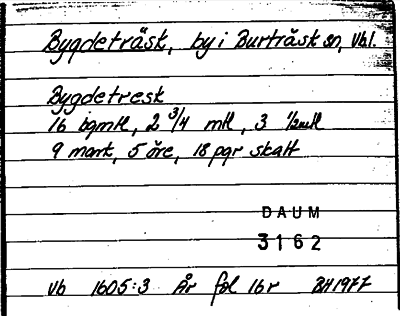 Bygdeträsk, by i Burträsk sn, Vbl.
Bygdetresk
16 bgmtl, 2 3/4 mtl, 3 1/2mtl
9 mark, 5 öre, 18 pgr skatt
DAUM
3162
Vb 1605:3 År fol 16r BH1977